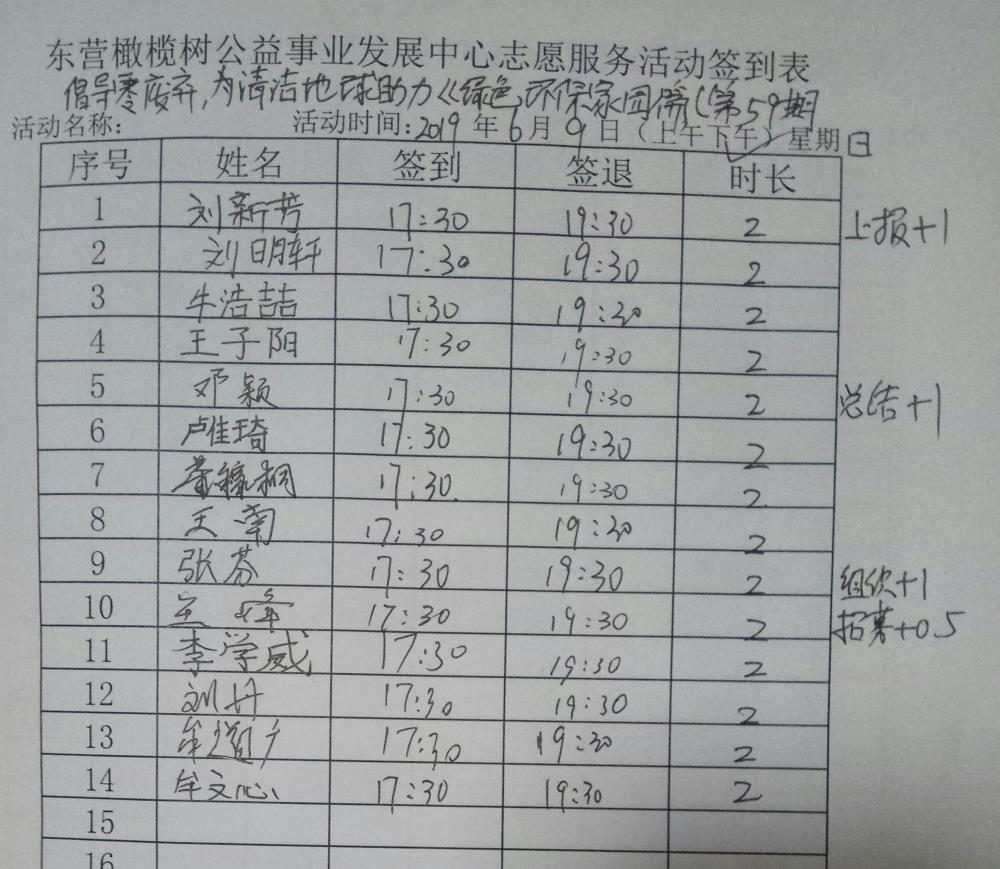 东营橄榄树公益事业发展中心志愿服务活动签到表
倡导零废弃,为清洁地球助力《绿色环保家园》(第59期
活动名称: 活动时间:2019年6月9日(上午下午)星期日
序号 姓名 签到 签退 时长
1 刘新芳 17:30 19:30 2 上报+1
2 刘明轩 17:30 19:30 2
3 牛浩喆 17:30 19:30 2
4 王子阳 17:30 19:30 2
5 邓颖 17:30 19:30 2 总结+1
6 卢佳琦 17:30 19:30 2
7 17:30 19:30 2
8 王南 17:30 19:30 2
9 张芬 17:30 19:30 2 组织+1
10 17:30 19:30 2 招募+0.5
11 李学威 17:30 19:30 2
12 刘丹 17:30 19:30 2
13 牟 17:30 19:30 2
14 牟文心 17:30 19:30 2
15
16